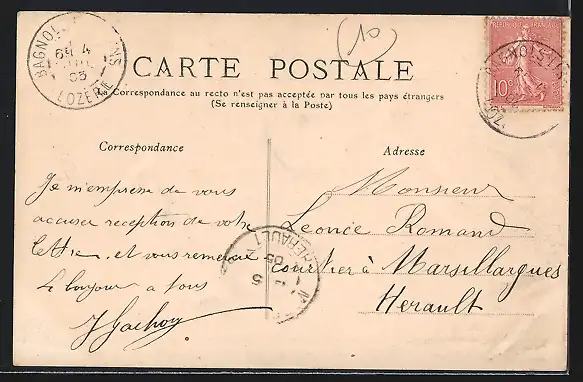 (10)
BAGNOLS BAINS
LOZÈRE
REPUBLIQUE FRANÇAISE
10c
CARTE POSTALE
La Correspondance au recto n'est pas acceptée par tous les pays étrangers
(Se renseigner à la Poste)
Correspondance
Adresse
Je m'empresse de vous
accuser reception de votre
lettre, et vous remercie
Le bonjour a tous
Monsieur
Leonce Romand
Courtier à Marsillargues
Herault
HERAULT